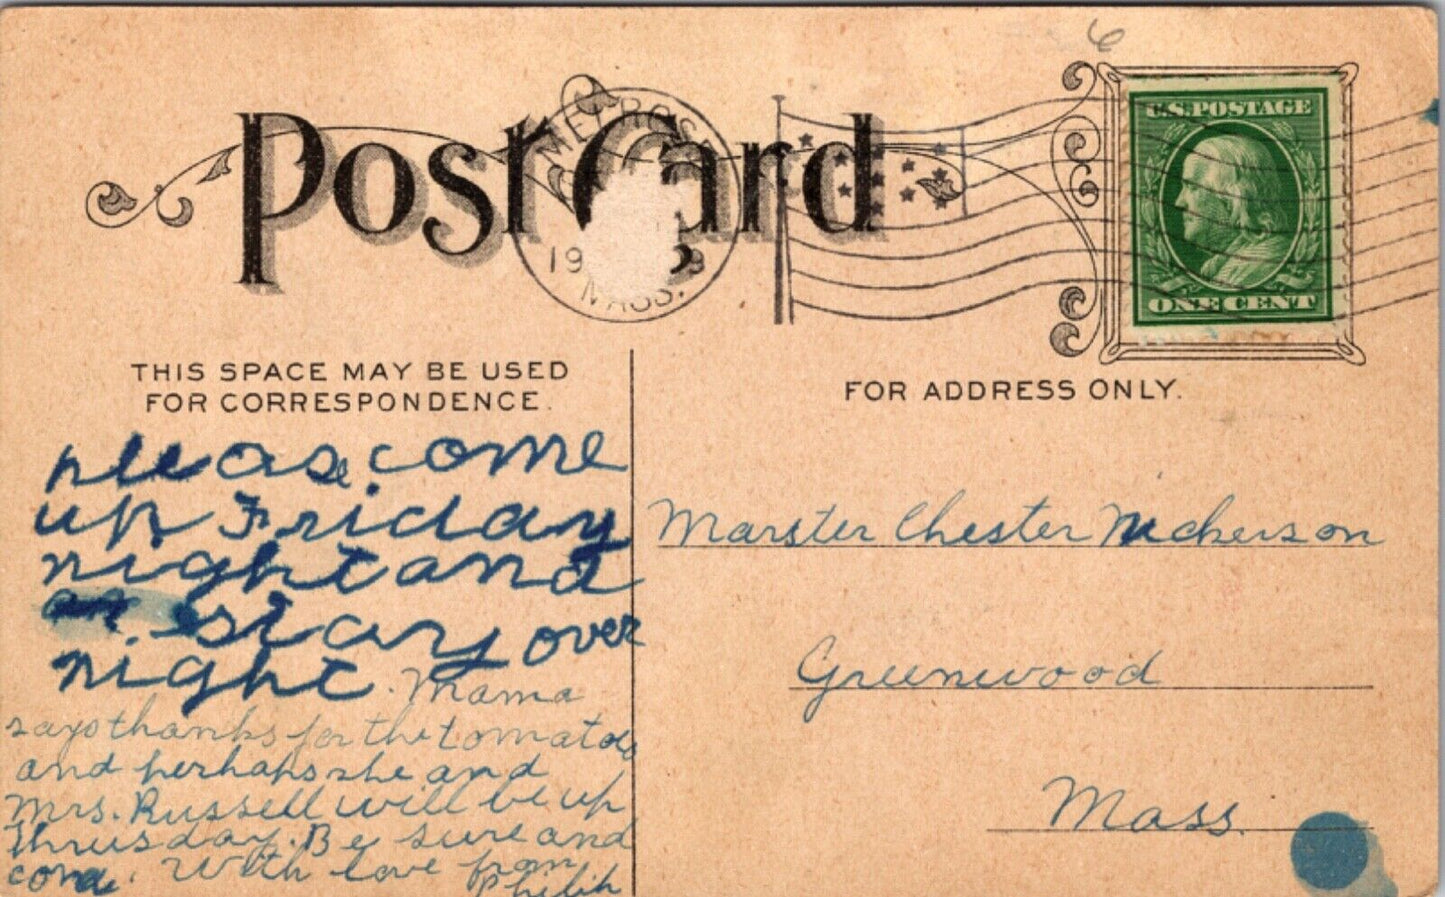 6
Post Card
MELROSE
19 9
MASS.
U.S. POSTAGE
ONE CENT
THIS SPACE MAY BE USED
FOR CORRESPONDENCE.
FOR ADDRESS ONLY.
pleease come
up Friday
night and
stay over
night. Mama
says thanks for the tomatoes
and perhaps she and
Mrs. Russell will be up
Thrusday. Be sure and
come. With love from
Philip
Marster Chester Nickerson
Greenwood
Mass.